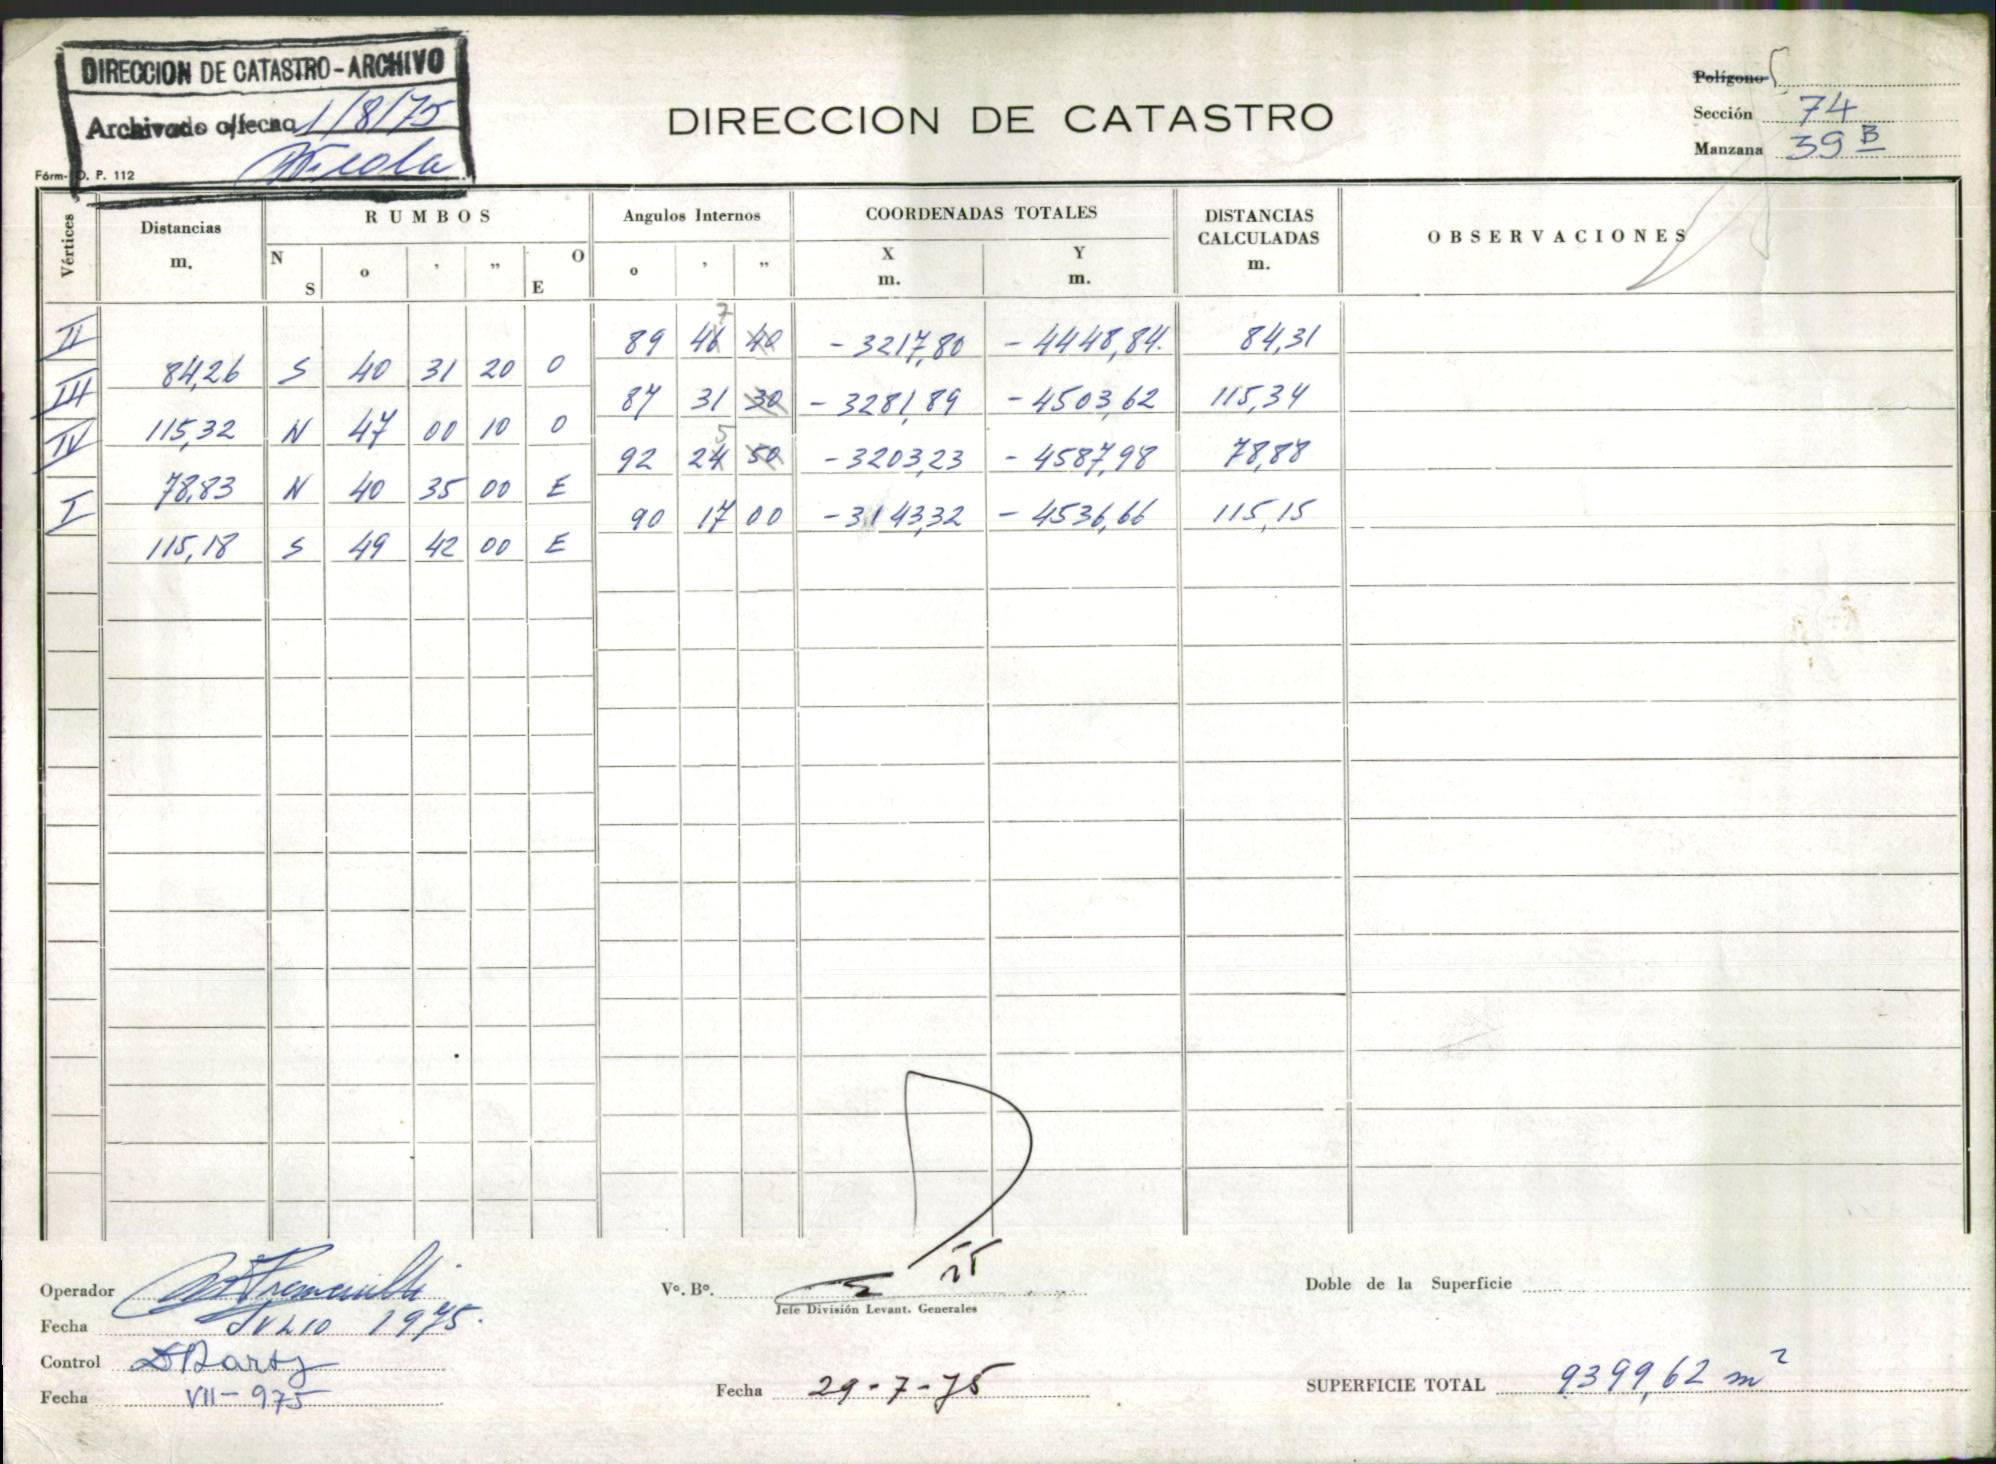 DIRECCION DE CATASTRO - ARCHIVO
Archivado c/fecha 1/8/75
Fórm. O. P. 112
DIRECCION DE CATASTRO
Polígono
Sección 74
Manzana 39 B
Vértices Distancias m. RUMBOS N S o ' " O E Angulos Internos o ' " COORDENADAS TOTALES X m. Y m. DISTANCIAS CALCULADAS m. OBSERVACIONES
II 89 46 7 40 -3217,80 -4448,84 84,31
84,26 S 40 31 20 O
III 87 31 30 -3281,89 -4503,62 115,34
115,32 N 47 00 10 O
IV 92 24 5 50 -3203,23 -4587,98 78,88
78,83 N 40 35 00 E
I 90 17 00 -3143,32 -4536,66 115,15
115,18 S 49 42 00 E
Operador
Fecha JULIO 1975.
Control
Fecha VII-975
Vo. Bo.
Jefe División Levant. Generales
Fecha 29-7-75
Doble de la Superficie
SUPERFICIE TOTAL 9399,62 m²